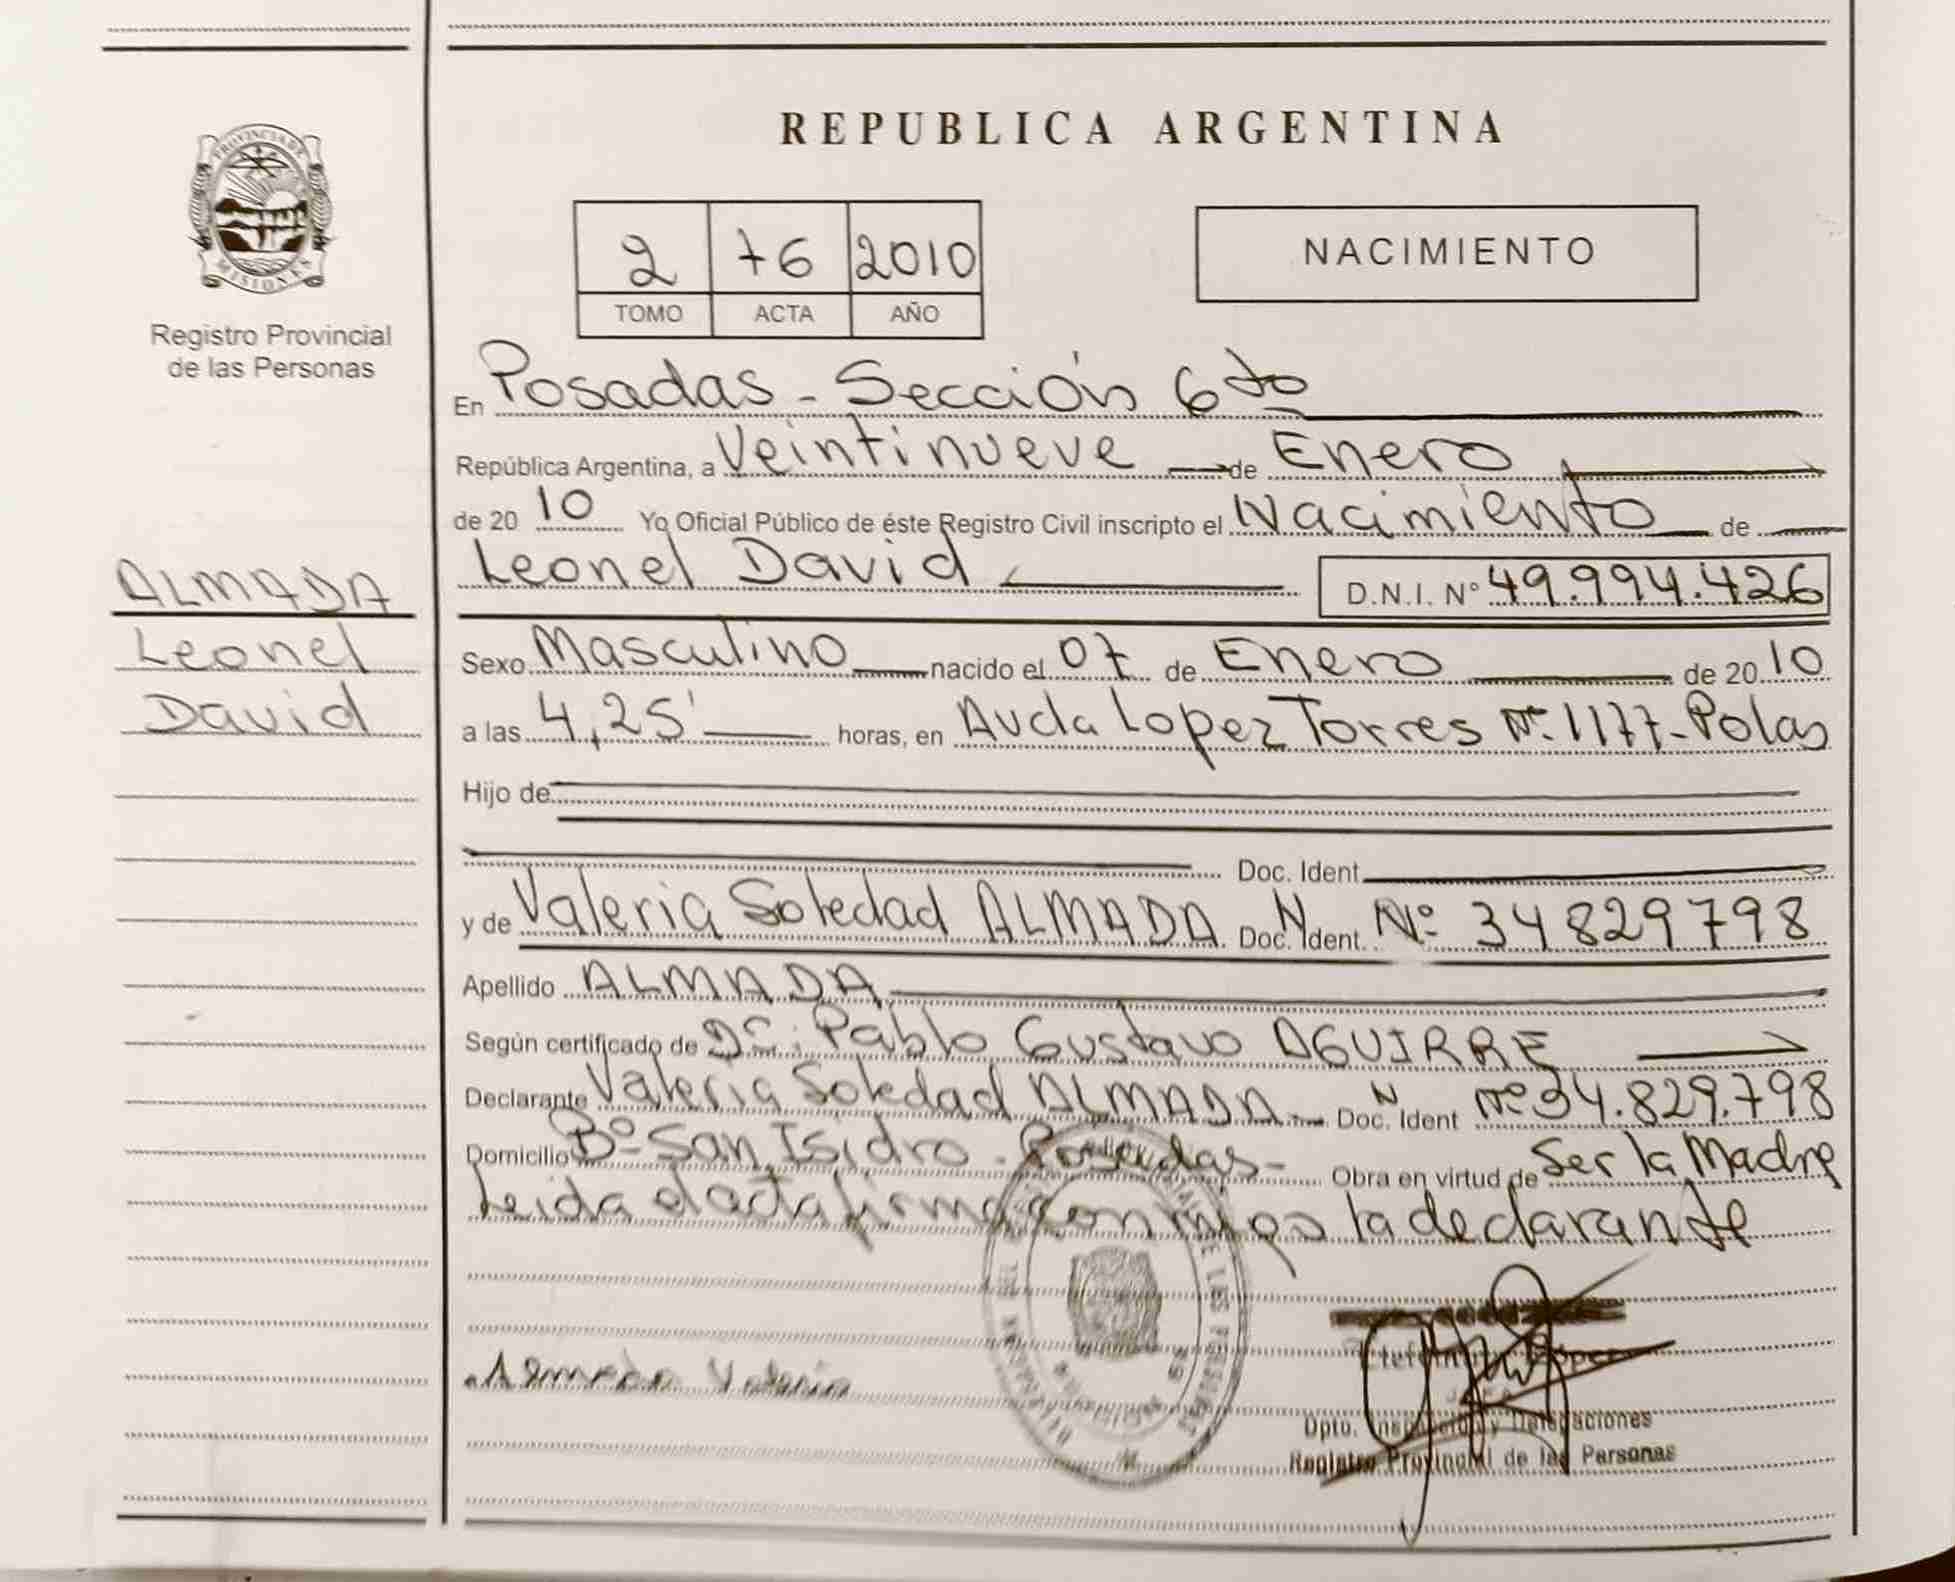 REPUBLICA ARGENTINA
PROVINCIA DE
MISIONES
Registro Provincial
de las Personas
2 76 2010
TOMO ACTA AÑO
NACIMIENTO
En Posadas - Sección 6to
República Argentina, a Veintinueve de Enero
de 2010 Yo Oficial Público de éste Registro Civil inscripto el Nacimiento de
Leonel David D.N.I. Nº 49.994.426
ALMADA
Leonel
David
Sexo Masculino nacido el 07 de Enero de 2010
a las 4,25' horas, en Avda Lopez Torres Nº 1177-Pdas
Hijo de
Doc. Ident.
y de Valeria Soledad ALMADA Doc. N Ident. Nº 34829798
Apellido ALMADA
Según certificado de Dr: Pablo Gustavo AGUIRRE
Declarante Valeria Soledad ALMADA Doc. N Ident Nº 34.829.798
Domicilio Bº San Isidro - Posadas - Obra en virtud de Ser la Madre
Leida el acta firma conmigo la declarante
Almada Valeria
Dpto. Inspección y Delegaciones
Registro Provincial de las Personas